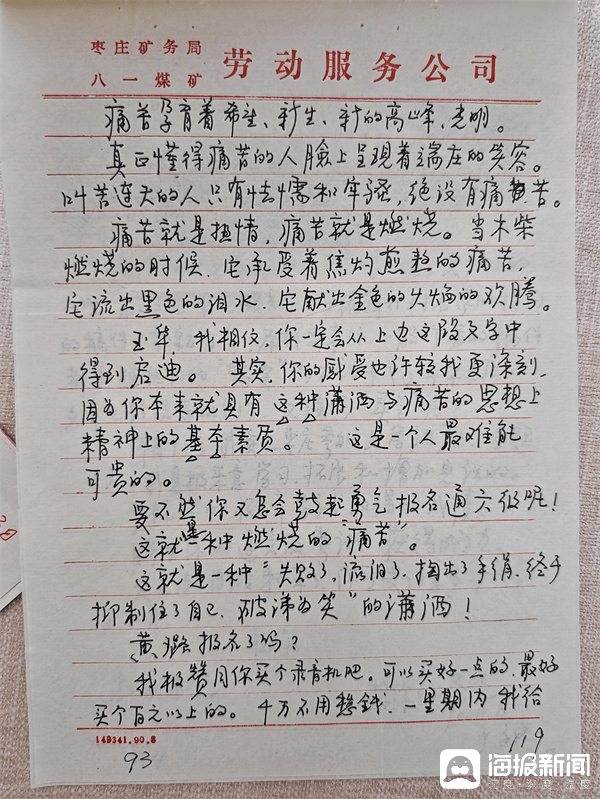 枣庄矿务局
八一煤矿
劳动服务公司
痛苦孕育着希望、新生、新的高峰、光明。
真正懂得痛苦的人脸上呈现着端庄的笑容。
叫苦连天的人只有怯懦和牢骚，绝没有痛苦。
痛苦就是热情，痛苦就是燃烧。当木柴
燃烧的时候，它承受着焦灼煎熬的痛苦，
它流出黑色的泪水，它献出金色的火焰的欢腾。
玉华，我相信，你一定会从上边这段文字中
得到启迪。其实，你的感受也许较我更深刻，
因为你本来就具有这种潇洒与痛苦的思想上
精神上的基本素质。这是一个人最难能
可贵的。
要不然你又怎会鼓起勇气报名通六级呢！
这就是一种燃烧的“痛苦”。
这就是一种“失败了，流泪了，掏出了手绢，终于
抑制住了自己，破涕为笑”的潇洒！
黄璐报名了吗？
我极赞同你买个录音机吧。可以买好一点的，最好
买个百元以上的。千万不用愁钱，一星期内我给
149341.90.8
93
119
海报新闻